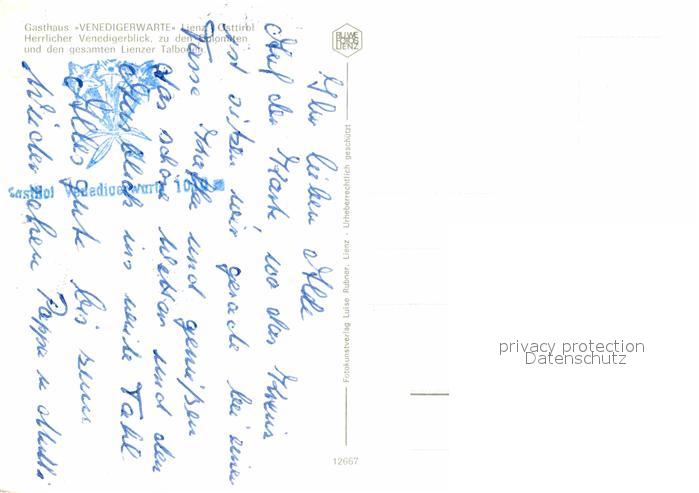 Gasthaus »VENEDIGERWARTE« Lienz Osttirol
Herrlicher Venedigerblick, zu den Dolomiten
und den gesamten Lienzer Talboden
BILLWE
FOTOS
LIENZ
Ihr lieben
Auf der Karte wo das Kreuz
ist sitzen wir gerade bei einer
Tasse Kaffee und genießen
das schöne Wetter und den
Ausblick ins weite Tahl
Alles gute bis zum
Wiedersehen Pappa u Mutti
Gasthof Venedigerwarte
Fotokunstverlag Luise Rubner, Lienz - Urheberrechtlich geschützt
12667
privacy protection
Datenschutz